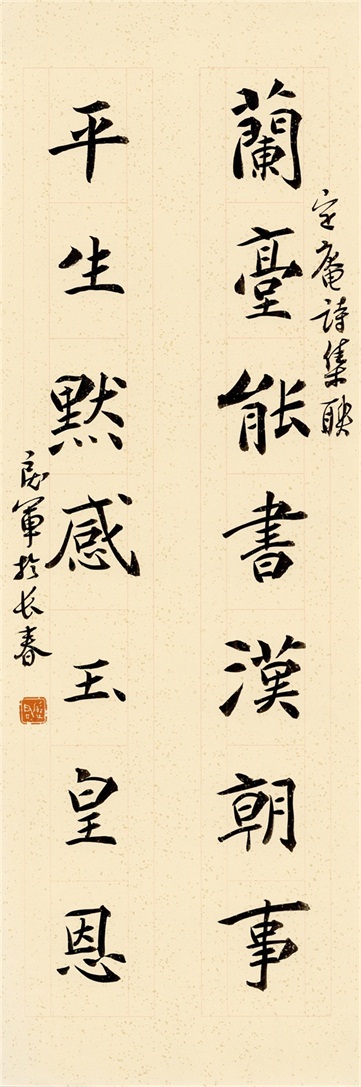 定庵詩集联
蘭臺能書漢朝事
平生默感玉皇恩
良軍於长春